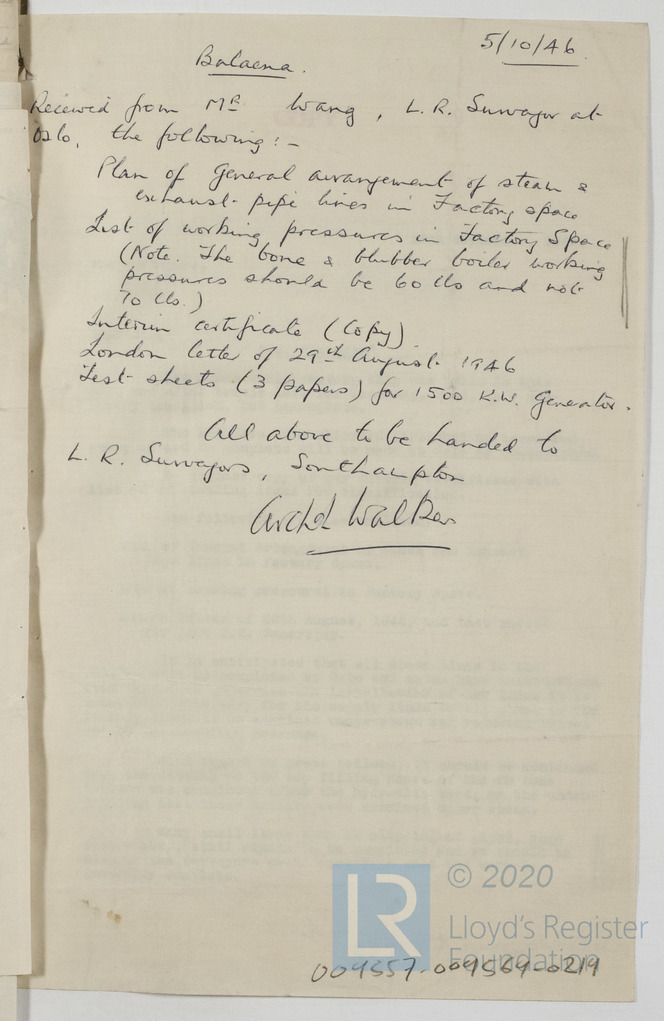 5/10/46
Balaena.
Received from Mr Wang, L. R. Surveyor at
Oslo, the following:-
Plan of General arrangement of steam &
exhaust pipe lines in Factory space
List of working pressures in Factory Space
(Note. The bone & blubber boiler working
pressures should be 60 lbs and not
70 lbs.)
Interim certificate (Copy)
London letter of 29th August 1946
Test sheets (3 papers) for 1500 K.W. Generator.
All above to be handed to
L. R. Surveyors, Southampton
Archd Walker
LR
© 2020
Lloyd's Register
Foundation
009557-009564-0219